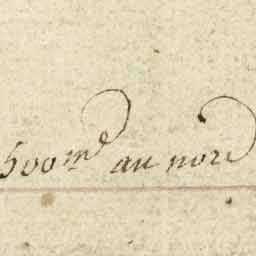 500md au nord